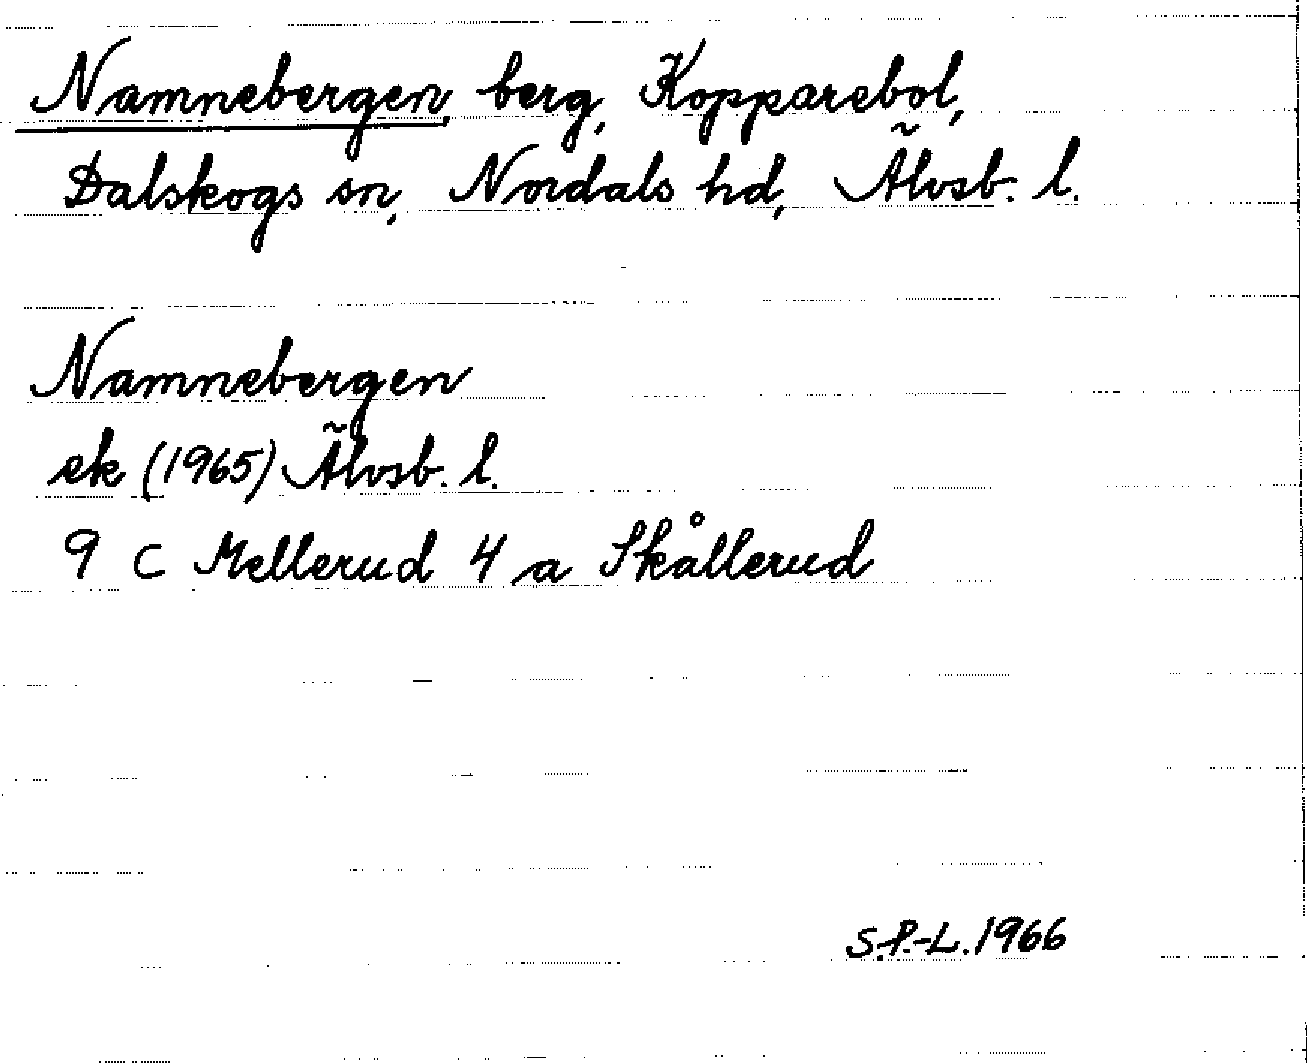 Namnebergen, berg, Kopparebol,
Dalskogs sn, Nordals hd, Älvsb. l.
Namnebergen
ek (1965) Älvsb. l.
9 C Mellerud 4 a Skållerud
S.P.-L. 1966